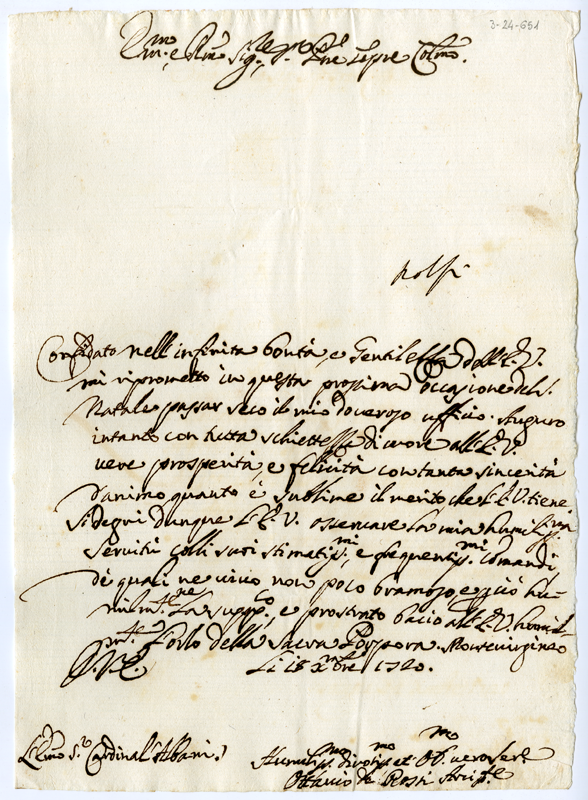 3-24-651
Em.mo e R.mo Sig.re Sig.r P.ne sempre Col.mo
Confidato nell'infinita bontà, e Gentilezza dell'E.V.
mi riprometto in questa prossima occasione del S.
Natale passar seco il mio doveroso ufficio. Auguro
intanto con tutta schiettezza di cuore all'E.V.
vere prosperità, e felicità con tanta sincerità
d'animo quanto è sublime il merito che l'E.V. tiene
Si degni dunque l'E.V. osservare la mia humiliss.ma
servitù colli suoi stimatiss.mi, e frequentiss.mi comandi
de quali ne vivo non poco bramoso e più hu-
milm.te La supp.co, e prostrato bacio all'E.V. humil-
m.te l'orlo della sacra Porpora. Montevirgineo
Li 18 Xmbre 1720.
E.mo S.r Cardinal Albani
Humiliss.mo divotiss.mo et Ob.mo vero Ser.re
Ottavio de Rossi Arcip.te